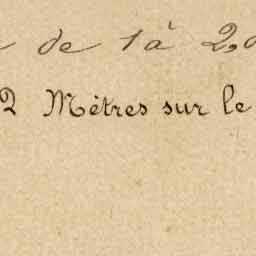 de 1 à 2,0
2 Mètres sur le